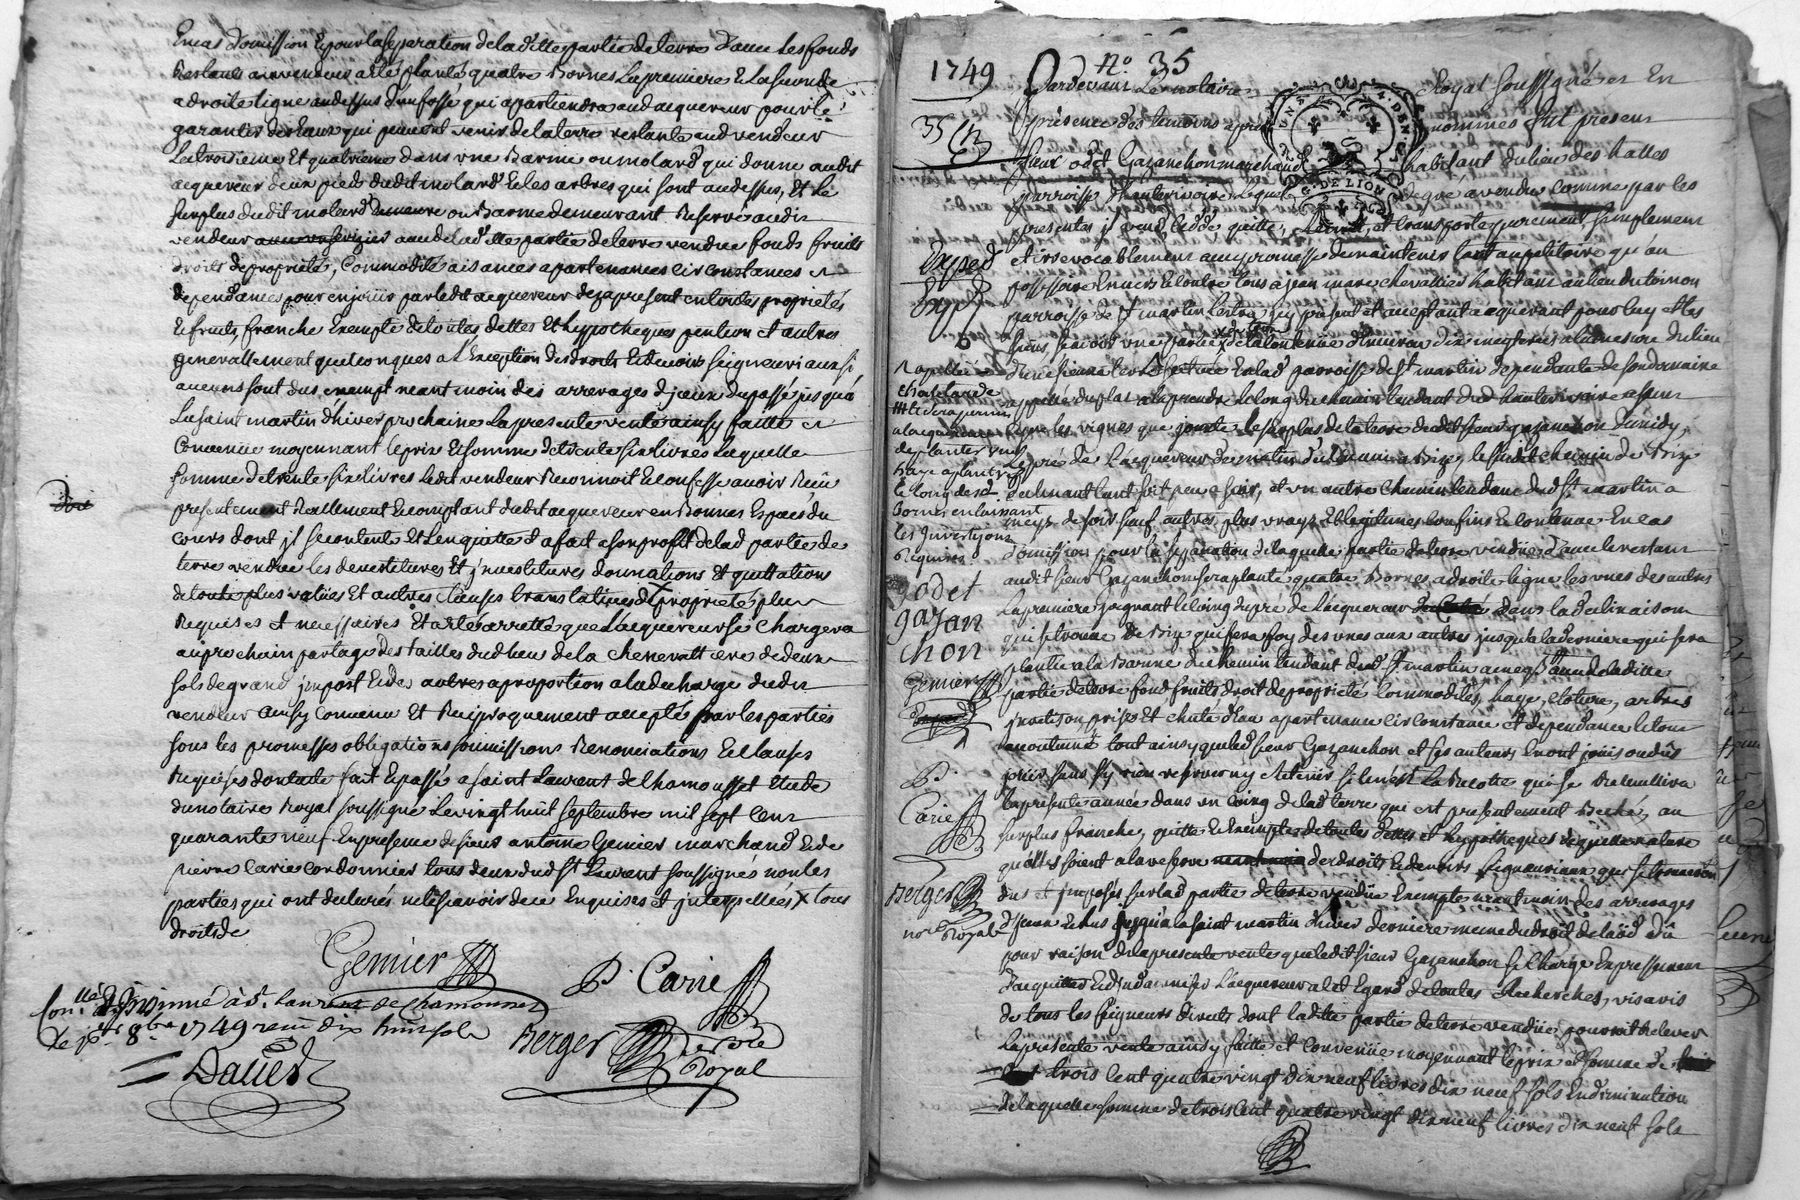 En cas d'omission Et pour la separation de la ditte partie de terre d'avec les fonds
Restant au vendeur a eté planté quatre Bornes La premiere & la seconde
a droite ligne au dessus d'un fossé qui apartiendra aud acquereur pour le
garantir des Eaux qui peuvent venir de la terre restante aud vendeur
La troisieme Et quatrieme dans une Barme ou molard qui donne audit
acquereur deux pieds dudit molard & les arbres qui sont au dessus, Et le
surplus dudit molard ou Barme demeurant Reservé audit
vendeur avec la ditte partie de terre vendue fonds fruits
droits de propriété, Commodité aisances apartenances circonstances et
dependances pour en jouir par ledit acquereur dez apresent en toutes proprietés
& fruits, franche Exempte de toutes dettes Et hypotheques pention et autres
generallement quelconques a l'Exception des droits & devoirs seigneuriaux si
aucuns sont dus exempt neant moin des arrerages d'jceux du passé jusqu'à
La saint martin d'hiver prochaine La presente vente ainsy faitte et
Convenüe moyennant le prix & somme de trente six livres Laquelle
somme de trente six livres Ledit vendeur Reconnoit & confesse avoir Reçu
presentement Reallement & comptant dudit acquereur en Bonnes Especes du
cours dont jl se contente Et L'en quitte Et a fait a son profit de lad partie de
terre vendue les devestitures Et jnvestitures donnations Et quittations
de toute plus valües Et autres Clauses translatives de proprieté plus
Requises et necessaires Et a eté arretté que L'acquereur se Chargera
au prochain partage des tailles dud lieu de la chenevattiere de deux
sols de grand jmpost & des autres a proportion a la decharge dudit
vendeur ainsy Convenu Et Reciproquement accepté par les parties
sous les promesses obligations soumissions Renonciations & clauses
Requises dont acte fait & passé a saint Laurent de Chamousset Etude
du notaire Royal soussigné Le vingt huit septembre mil sept cens
quarante neuf En presence de sieur antoine Genier marchand & de
pierre Carie cordonnier tous deux dud St Laurent soussignés non les
parties qui ont declarés ne le sçavoir de ce Enquises et jnterpellées X tous
droits de
doit
Genier
P. Carie
Con.llé & Insinué à St. Laurent de Chamousset
Le pr. 8bre 1749 reçu dix huit sols
Daüet
Berger
no.re
Royal
1749
N.º 35
35
Pardevant Le notaire Royal soussigné & En
presence des temoins apres nommés fut present
sieur odet Gazanchon marchand habitant du lieu des halles
parroisse d'hauterivoire Lequel de gré a vendu Comme par les
presentes jl vend, Cedde, quitte, Remet, et transporte purement, simplement
et irrevocablement avec promesse de maintenir tant au petitoire qu'au
possessoire Envers & contre tous a jean marc chevallier habitant au lieu du toinon
parroisse de St martin Lestra jcy present et aceptant acquerant pour luy et les
siens, sçavoir une partie de la contenue d'environ dix meyteries a la mesure du lieu
d'une piece terre scituée En lad parroisse de St martin dependante de son domaine
appellé du plat a la prendre le long du chemin tendant dud hauterivoire a
Le pré de L'acquereur de matin
declinant tant soit peu a soir, et un autre chemin tendant dud St martin a
meys de soir sauf autres plus vrays & legitimes confins & contenue En cas
d'omission pour la separation de laquelle partie de terre vendüe d'avec le restant
audit sieur Gazanchon sera planté quatre Bornes a droite ligne les unes des autres
La premiere joignant le Coing du pré de L'acquereur dans la declinaison
qui se trouve de Bize qui fera foy des unes aux autres jusqu'a la derniere qui sera
plantée a la Barme du chemin tendant dud St martin a meys avec la ditte
partie de terre fond fruits droit de propriété Commodités, haye, cloture, arbres
jmaison prises Et chute d'Eau apartenance circonstance et dependance le tout
accoutumé tout ainsy que led sieur Gazanchon et ses auteurs En ont jouis ou dûs
jouir sans s'y rien reserver ny Retenir si le n'est La Recolte qui se Receuillira
La presente année dans un coing de lad terre qui est presentement Beché, au
surplus franche, quitte & Exempte de toutes dettes et hypotheques de quelle nature
qu'elles soient a la reserve de droits & devoirs seigneuriaux qui se trouveront
dus et jmposés sur lad partie de terre vendüe Exempte neantmoin des arrerages
d'jceux Echus jusqu'a la saint martin d'hiver derniere meme du droit de laod dû
pour raison de la presente vente que ledit sieur Gazanchon se charge Expressement
d'acquitter & d'jndamniser L'acquereur a cet Egard de toutes Recherches, vis a vis
de tous les seigneurs directs dont la ditte partie de terre vendüe pourroit Relever
La presente vente ainsy faitte et convenüe moyennant le prix et somme de
trois Cent quatre vingt dix neuf livres dix neuf sols En diminution
de laquelle somme de trois cent quatre vingt dix neuf livres dix neuf sols
G. DE LION
Exped
Exp.d
appellée
le long des d.
bornes en laissant
les Investizons
Requises
godet
gazan
chon
Genier
P.
Carie
Berger
no.re Royal